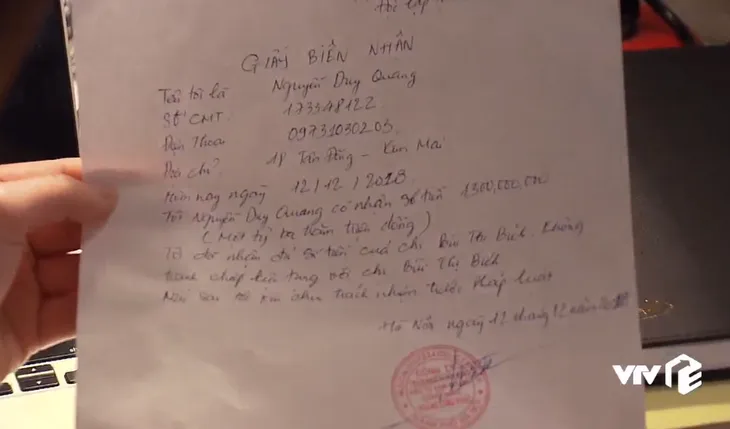 GIẤY BIÊN NHẬN
Tên tôi là Nguyễn Duy Quang
Số CMT: 173348122
Điện Thoại 09731030203
Địa chỉ: 18 Tân Mai
Hôm nay ngày 12/12/2018
Tôi Nguyễn Duy Quang có nhận số tiền 1300,000,000
(Một tỷ ba trăm triệu đồng)
Tôi đã nhận đủ số tiền của chị Bùi Thị Bích. Không
tranh chấp kiện tụng với chị Bùi Thị Bích
Nếu sau tôi xin chịu trách nhiệm trước Pháp luật
Hà Nội ngày 12 tháng 12 năm 2018
VTV